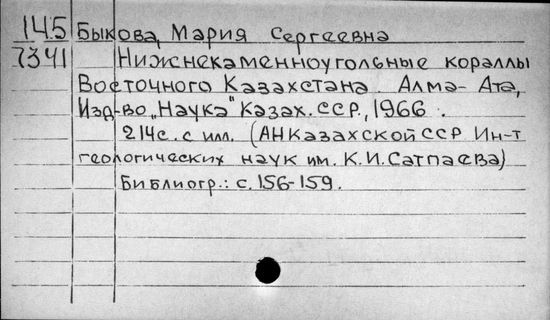 145 Быкова, Мария Сергеевна
7341 Нижнекаменноугольные кораллы
Восточного Казахстана. Алма-Ата,
Изд-во „Наука" Казах. ССР, 1966.
214с. с илл. (АН Казахской ССР Ин-т
геологических наук им. К.И. Сатпаева)
Библиогр.: с. 156-159.